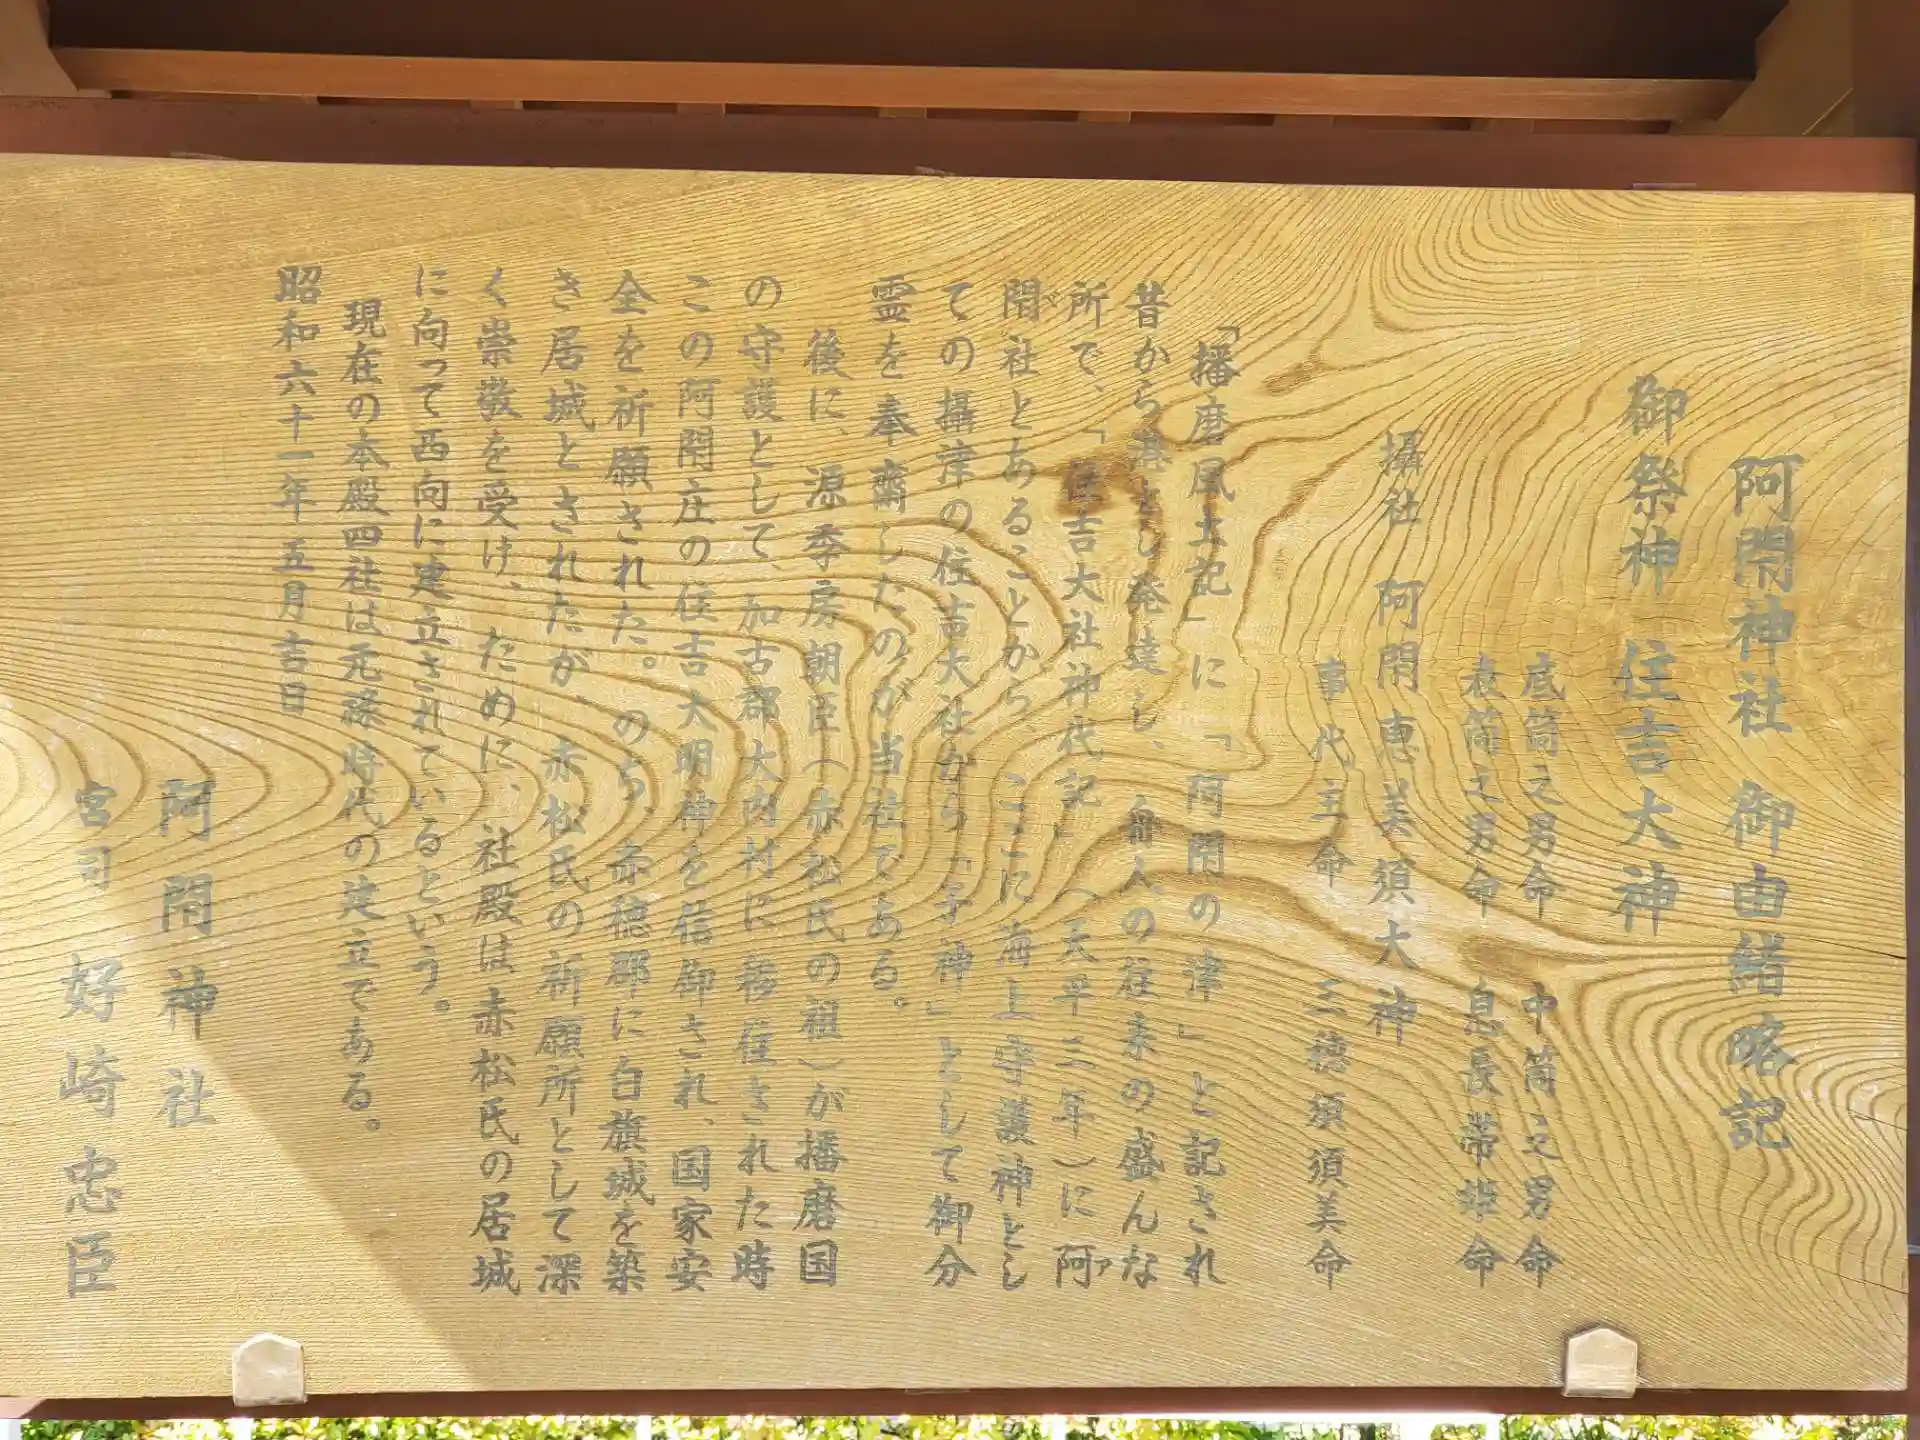 阿閇神社 御由緒略記
御祭神 住吉大神
底筒之男命 中筒之男命
表筒之男命 息長帯姫命
攝社 阿閇恵美須大神
事代主命 三穂須須美命
「播磨風土記」に「阿閇の津」と記され
昔から港とし発達し、舟人の往来の盛んな
所で、「住吉大社神代記」（天平三年）に阿
閇社とあることから、ここに海上守護神とし
ての攝津の住吉大社から「子神」として御分
霊を奉齋したのが当社である。
後に、源季房朝臣（赤松氏の祖）が播磨国
の守護として、加古郡大内村に移住された時
この阿閇庄の住吉大明神を信御され、国家安
全を祈願された。のち、赤穂郡に白旗城を築
き居城とされたが、赤松氏の祈願所として深
く崇敬を受け、ために、社殿は赤松氏の居城
に向って西向に建立されているという。
現在の本殿四社は元祿時代の建立である。
昭和六十一年五月吉日
阿閇神社
宮司 好崎忠臣